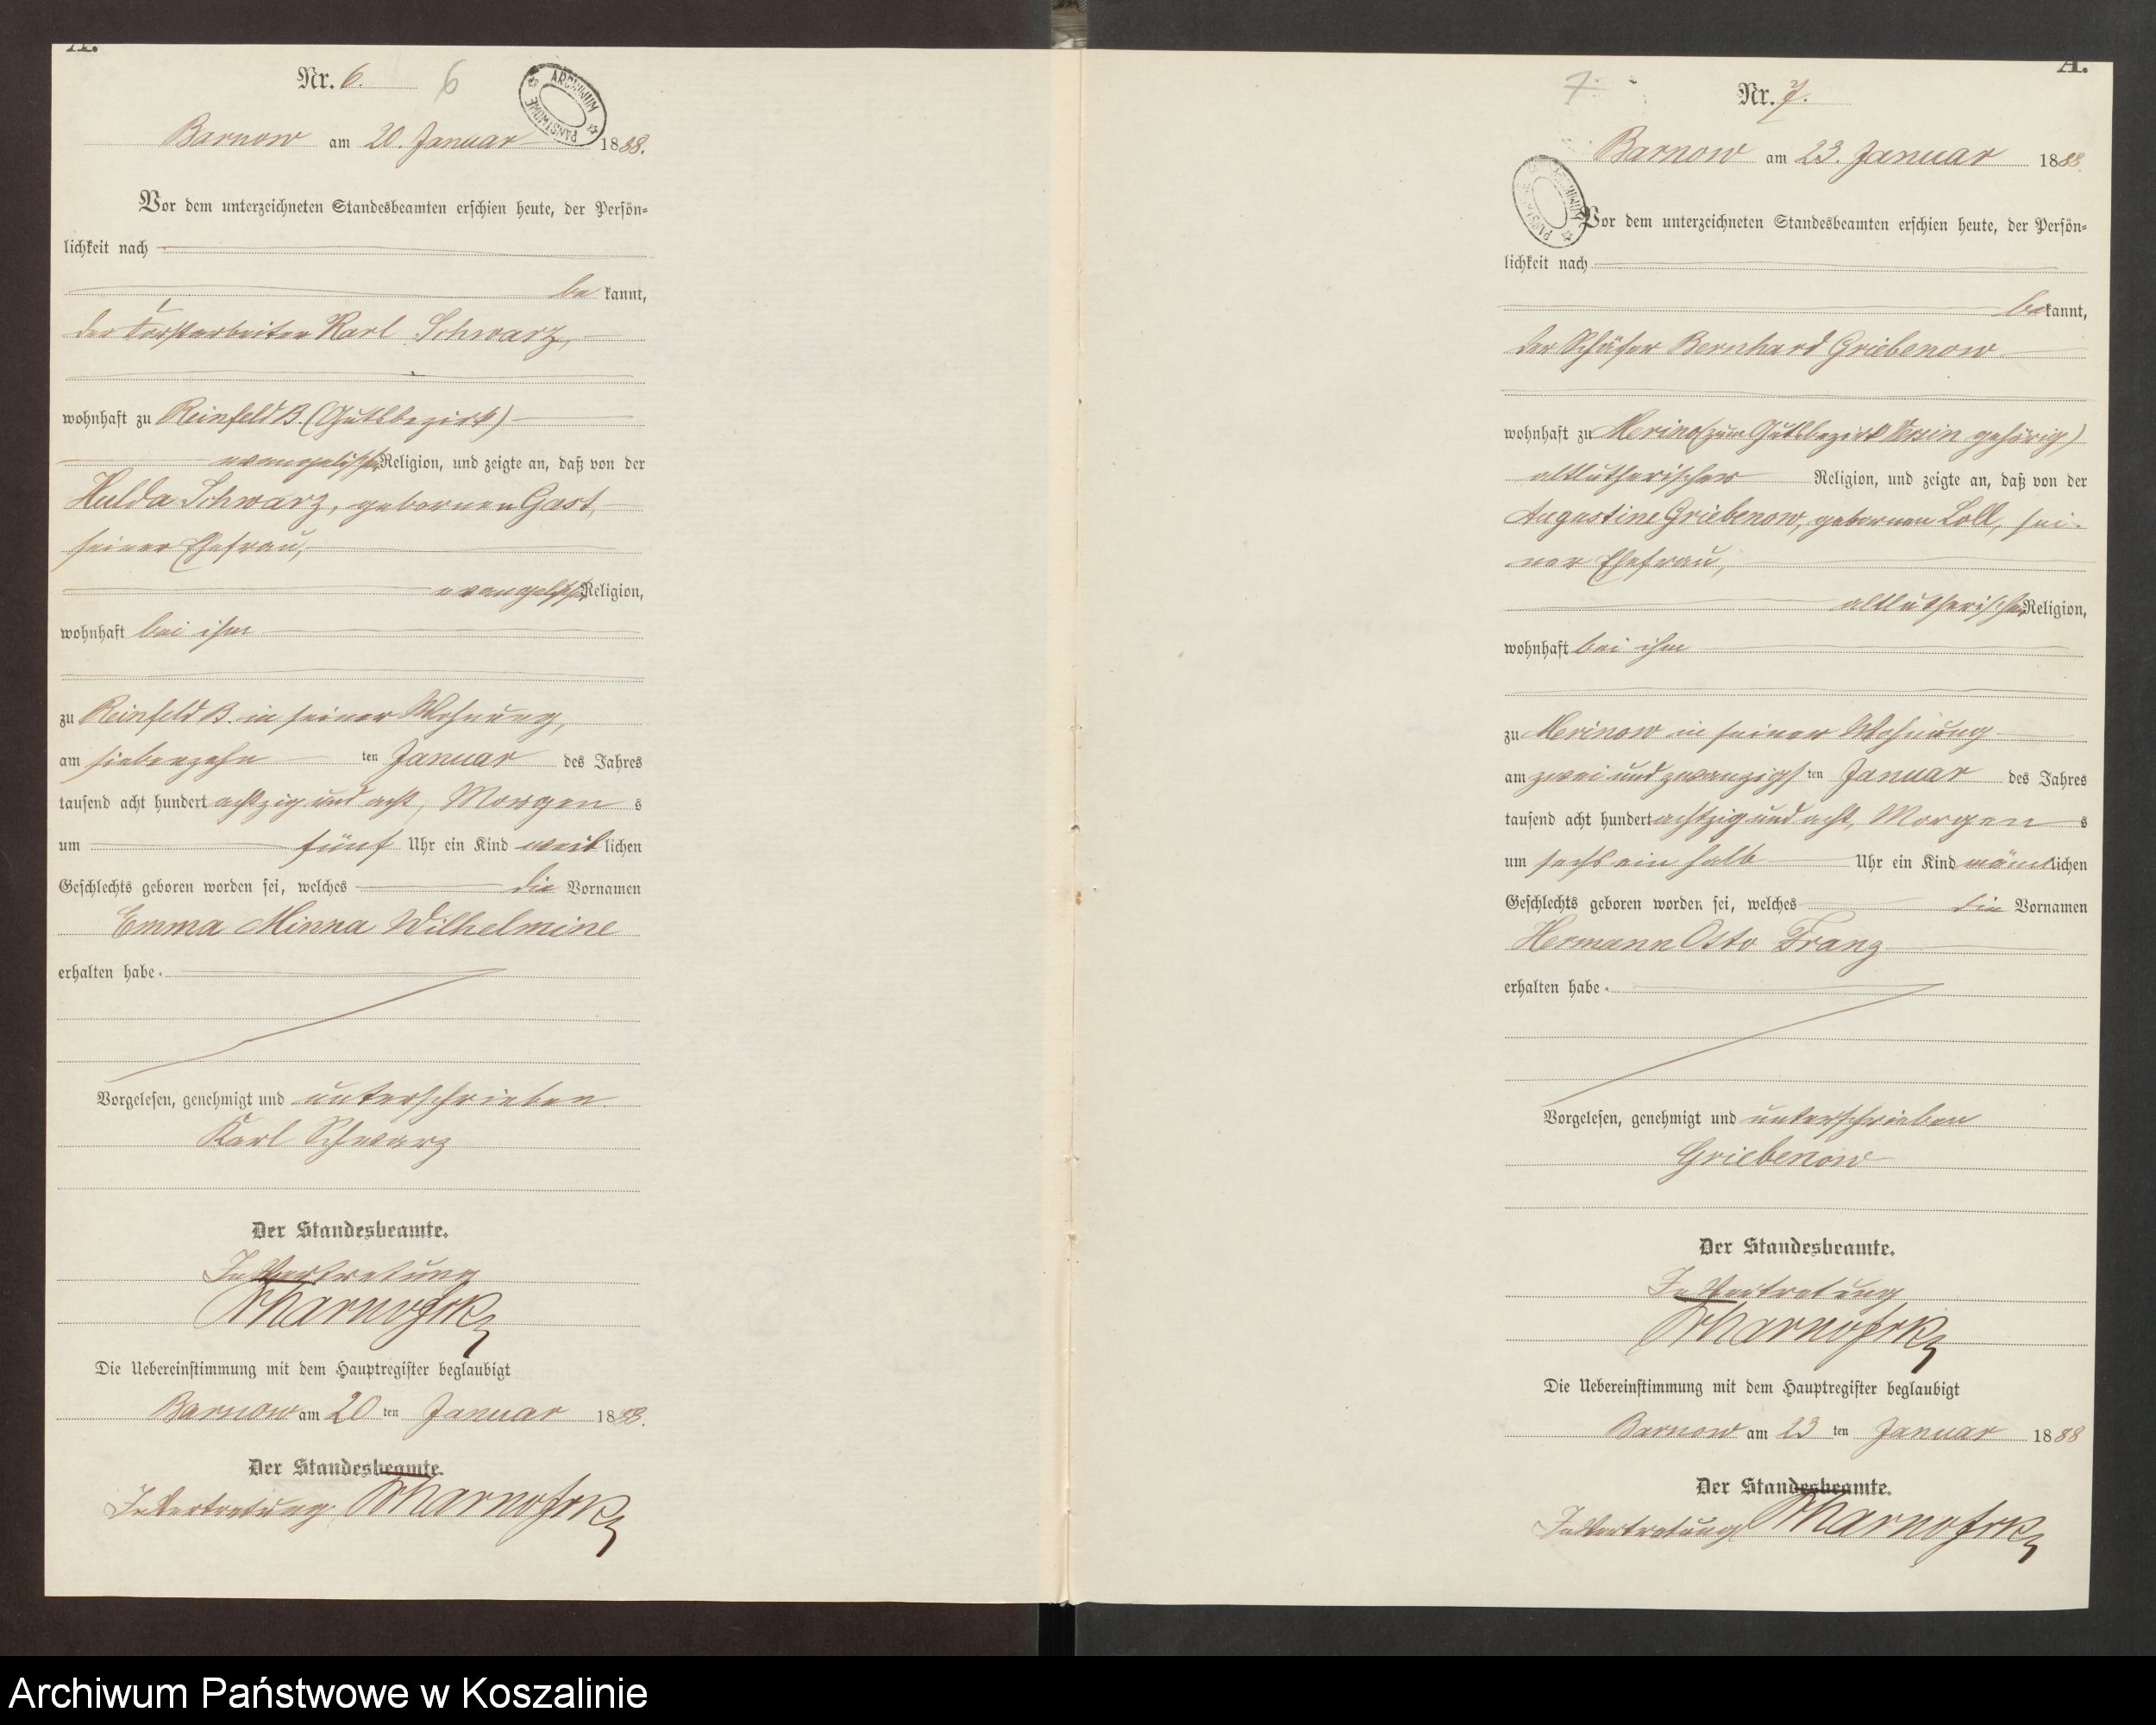 A.
Nr. 6.
6
ARCHIWUM PAŃSTWOWE
Barnow am 20. Januar 1888.
Vor dem unterzeichneten Standesbeamten erschien heute, der Persön-
lichkeit nach
be kannt,
der Forstarbeiter Karl Schwarz,
wohnhaft zu Reinfeld B. (Gutsbezirk)
evangelischer Religion, und zeigte an, daß von der
Hulda Schwarz, gebornen Gast,
seiner Ehefrau,
evangelischer Religion,
wohnhaft bei ihm
zu Reinfeld B. in seiner Wohnung,
am siebenzehn ten Januar des Jahres
tausend acht hundert achtzig und acht, Morgen s
um fünf Uhr ein Kind weiblichen
Geschlechts geboren worden sei, welches die Vornamen
Emma Minna Wilhelmine
erhalten habe.
Vorgelesen, genehmigt und unterschrieben
Karl Schwarz
Der Standesbeamte.
In Vertretung
Die Uebereinstimmung mit dem Hauptregister beglaubigt
Barnow am 20 ten Januar 1888.
Der Standesbeamte.
In Vertretung
A.
7
Nr. 7.
Barnow am 23. Januar 1888.
ARCHIWUM PAŃSTWOWE
Vor dem unterzeichneten Standesbeamten erschien heute, der Persön-
lichkeit nach
bekannt,
der Schäfer Bernhard Griebenow
wohnhaft zu Merino (zum Gutsbezirk Versin gehörig)
altlutherischer Religion, und zeigte an, daß von der
Augustine Griebenow, gebornen Loll, sei-
ner Ehefrau,
altlutherischer Religion,
wohnhaft bei ihm
zu Merinow in seiner Wohnung
am zwei und zwanzigs ten Januar des Jahres
tausend acht hundert achtzig und acht, Morgen s
um sechs ein halb Uhr ein Kind männlichen
Geschlechts geboren worden sei, welches die Vornamen
Hermann Otto Franz
erhalten habe.
Vorgelesen, genehmigt und unterschrieben
Griebenow
Der Standesbeamte.
In Vertretung
Die Uebereinstimmung mit dem Hauptregister beglaubigt
Barnow am 23 ten Januar 1888
Der Standesbeamte.
In Vertretung
Archiwum Państwowe w Koszalinie